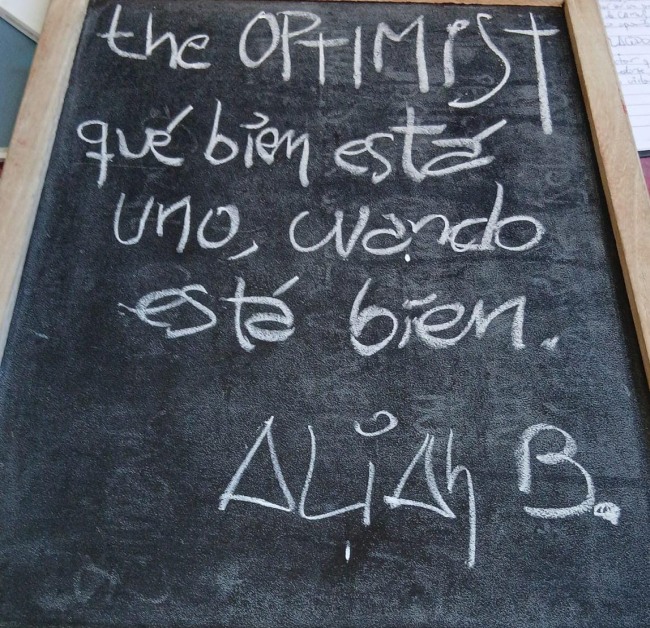 the OPTIMIST
qué bien está
uno, cuando
está bien.
ALiAh B.